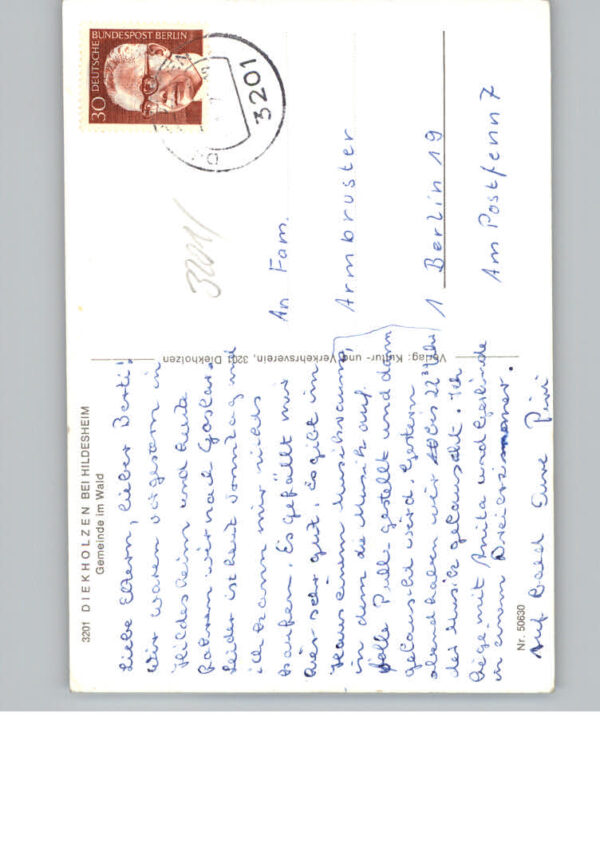 3201 DIEKHOLZEN BEI HILDESHEIM
Gemeinde im Wald
Liebe Eltern, lieber Berti!
Wir waren vorgestern in
Hildesheim und heute
fahren wir nach Goslar.
Leider ist heut Sonntag und
ich kann mir nichts
kaufen. Es gefällt mir
hier sehr gut. Es gibt im
Haus einen Musikraum,
in dem die Musik auf
volle Pulle gestellt und dann
gelauscht wird. Gestern
abend haben wir bis 22³⁰ Uhr
der Musik gelauscht. Ich
liege mit Anita und
in einem Dreierzimmer.
Auf Bald Eure Pini
Nr. 50630
Verlag: Kultur- und Verkehrsverein, 3201 Diekholzen
DEUTSCHE BUNDESPOST BERLIN
30
3201
3201/
An Fam.
Armbruster
1 Berlin 19
Am Postfenn 7